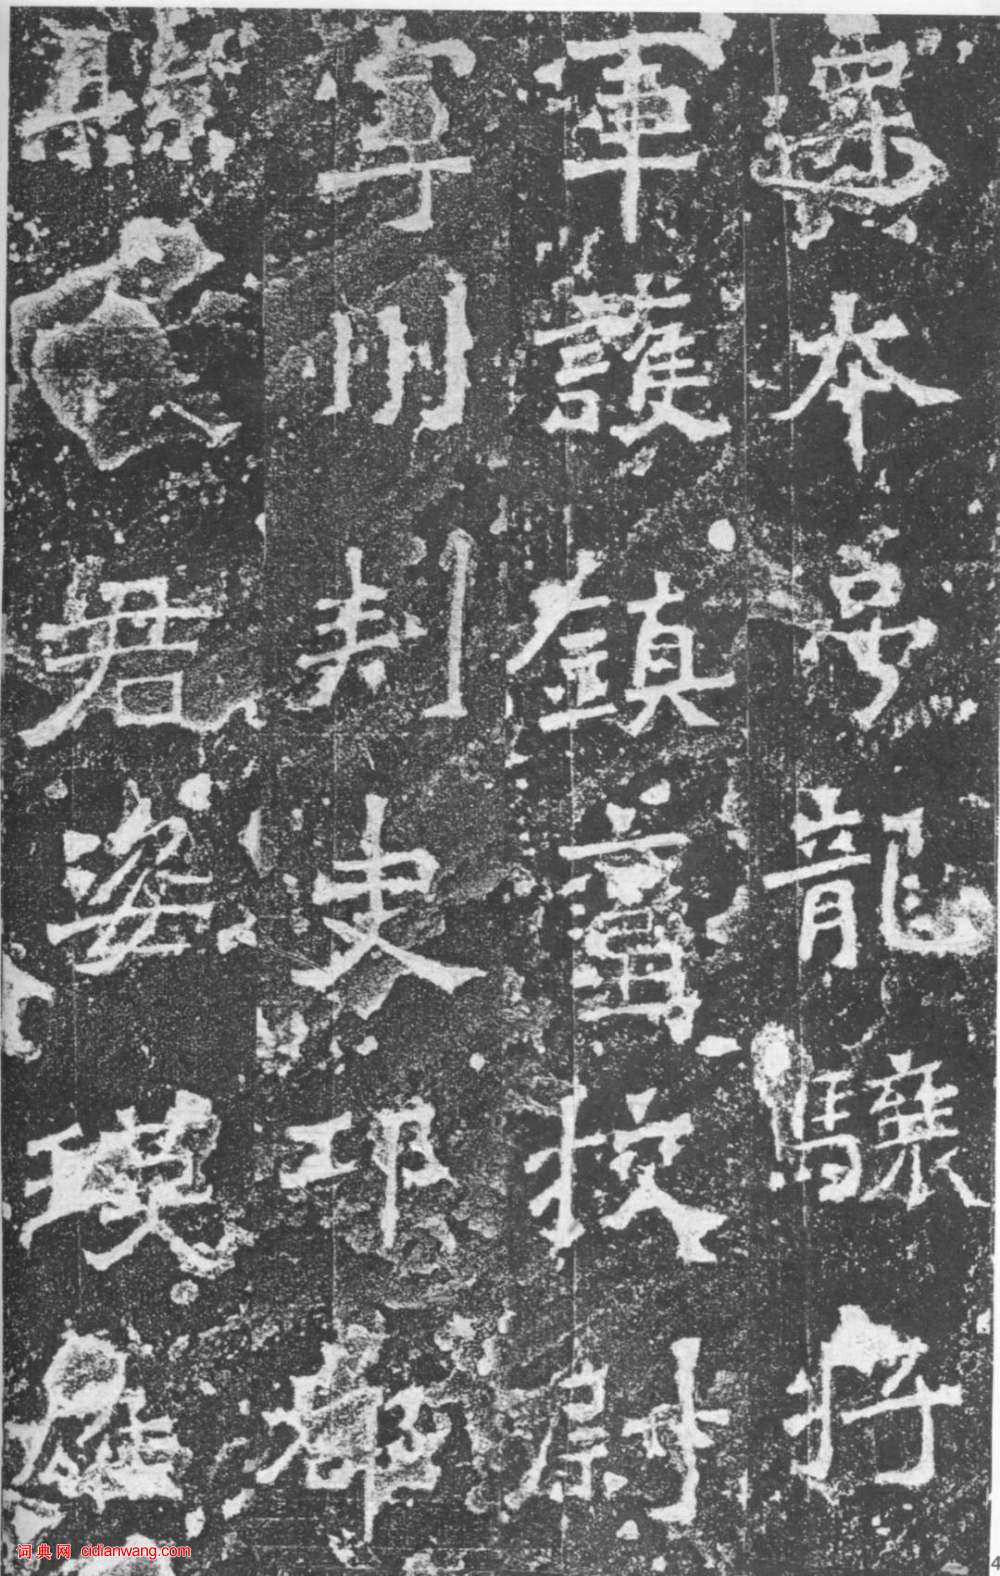 遷本号龍驤將
軍護鎮蠻校尉
寧州刺史邛都
縣君姿瑛雄
词典网 cidianwang.com
4